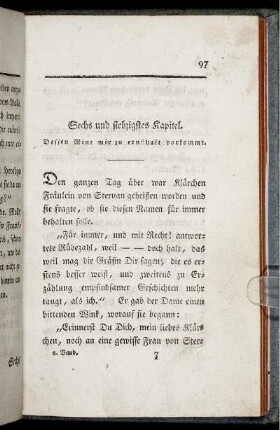 97
Sechs und siebzigstes Kapitel.
Dessen Mine mir zu ernsthaft vorkommt.
Den ganzen Tag über war Klärchen
Fräulein von Sternau geheißen worden und
sie fragte, ob sie diesen Namen für immer
behalten solle.
„Für immer, und mit Recht! antwor-
tete Rübezahl, weil — — doch halt, das
weil mag die Gräfin Dir sagen, die es er-
stens besser weiß, und zweitens zu Er-
zählung empfindsamer Geschichten mehr
taugt, als ich.“ Er gab der Dame einen
bittenden Wink, worauf sie begann:
„Erinnerst Du Dich, mein liebes Klär-
chen, noch an eine gewisse Frau von Ster-
2. Band. 7
Sechs